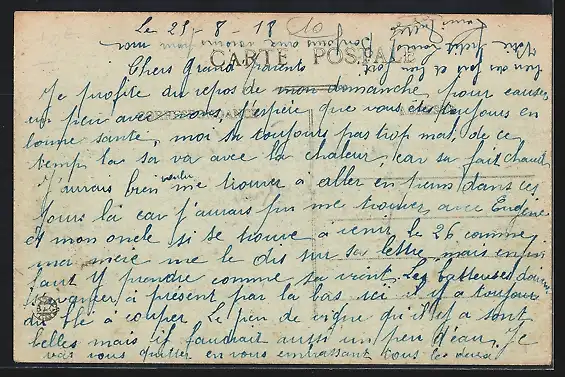 Le 25-8-18
CARTE POSTALE
Chers Grand parents
Je profite du repos de mon domanche pour causer
un peu avec vous j'espère que vous êtes toujours en
bonne santé, moi sa toujours pas trop mal, de ce
temp la sa va avec la chaleur, car sa fait chaud
J'aurais bien voulu me trouver a aller en perm dans ces
jours la car j'aurais pu me trouver avec Eugène
et mon oncle si se trouve a venir le 26 comme
ma mère me le dis sur sa lettre, mais enfin
faut y prendre comme sa vient. Les batteuses doivent
à présent par la bas ici il y a toujours
du blé a couper. Le peu de vigne qu'il y a sont
belles mais il faudrait aussi un peu d'eau. Je
vais vous quitter en vous embrassant tous les deux
CORRESPONDANCE